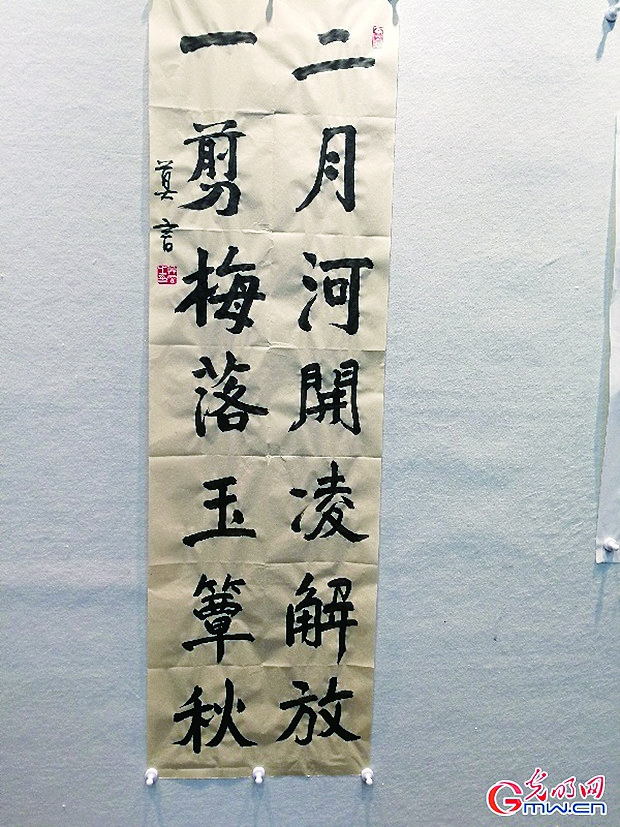 二月河開凌解放
一剪梅落玉簟秋
莫言
光明网
Gmw.cn